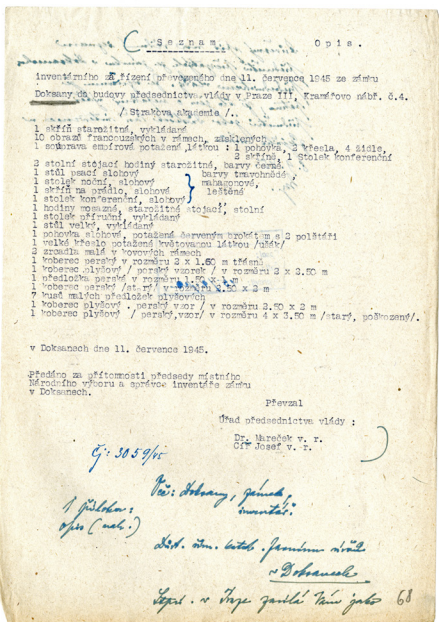 Seznam. Opis.
inventárního zařízení převezeného dne 11. července 1945 ze zámku
Doksany do budovy předsednictva vlády v Praze III, Kramářovo nábř. č.4.
/ Strakova akademie /.
1 skříň starožitná, vykládaná
10 obrazů francouzských v rámech, zasklených
1 souprava empírová potažená látkou : 1 pohovka, 2 křesla, 4 židle,
2 skříně, 1 stolek konferenční
2 stolní stojací hodiny starožitné, barvy černé
1 stůl psací slohový barvy tmavohnědé
1 stolek noční, slohový mahagonové,
1 skříň na prádlo, slohová leštěné
1 stolek konferenční, slohový
1 hodiny mosazné, starožitné stojací, stolní
1 stolek příruční, vykládaný
1 stůl velký, vykládaný
1 pohovka slohová, potažená červeným brokátem s 2 polštáři
1 velké křeslo potažené květovanou látkou /ušák/
2 zrcadla malá v kovových rámech
1 koberec perský v rozměru 2 x 1.60 m třásně
1 koberec plyšový / perský vzorek / v rozměru 2 x 2.50 m
1 předložka perská v rozměru 1.50 x 1 m
1 koberec perský /starý/ v rozměru x.50 x 2 m
7 kusů malých předložek plyšových
1 koberec plyšový / perský vzor / v rozměru 2.50 x 2 m
1 koberec plyšový / perský,vzor/ v rozměru 4 x 3.50 m /starý, poškozený/.
v Doksanech dne 11. července 1945.
Předáno za přítomnosti předsedy místního
Národního výboru a správce inventáře zámku
v Doksanech.
Převzal
Úřad předsednictva vlády :
Dr. Mareček v. r.
Cíř Josef v. r.
Čj: 3059/45
Věc: Doksany, zámek,
inventář.
1 příloha:
opis
v Doksanech
v Praze zasílá Vám jako
68